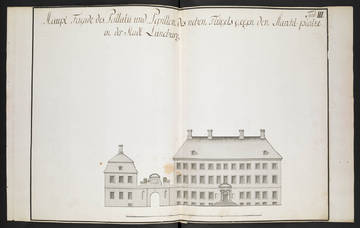 Haupt Façade des Pallatii und Pavillon des neben Flügels gegen den Marckt-platze
in der Stadt Lüneburg.
III.